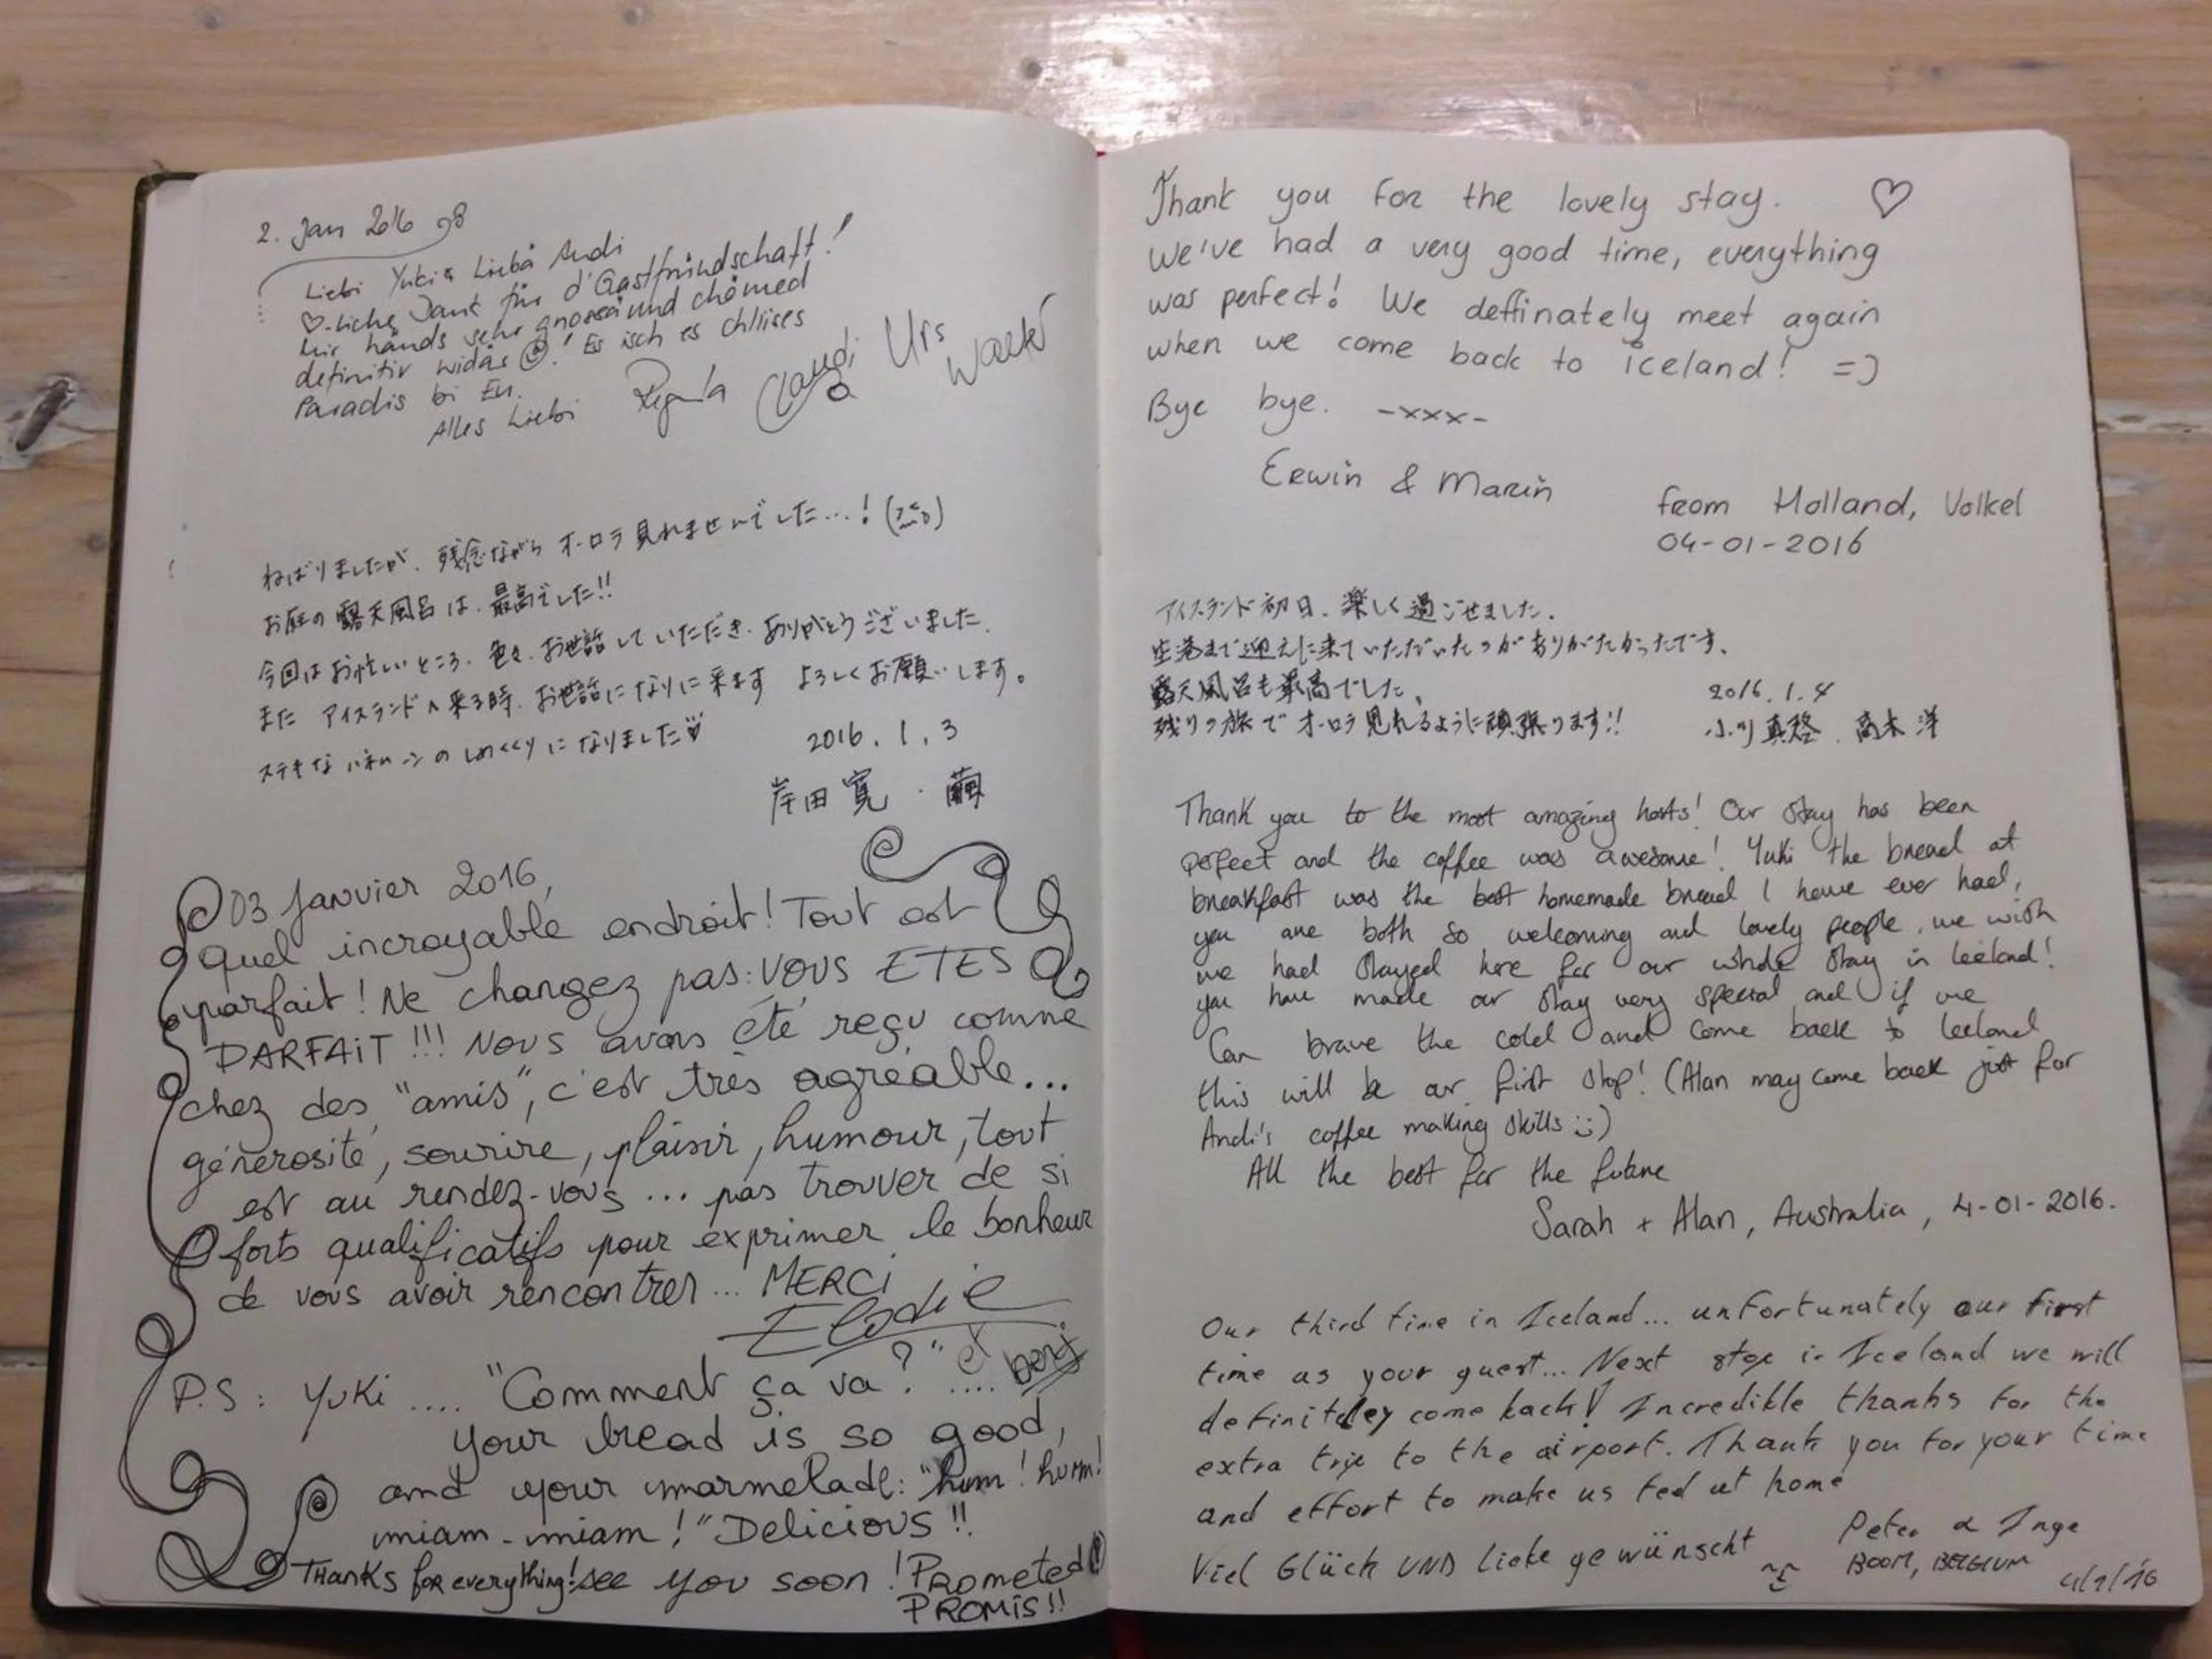 2. Jan 2016
Liebi Yuki & Liebä Andi
♡-liche Dank für d'Gastfründschaft!
Mir händs sehr gnossä und chömed
definitiv widär ☺! Es isch es chliises
Paradis bi Eu.
Alles Liebi
Regula Claudia Urs Walter
ねばりましたが、残念ながら オーロラ見れませんでした…!
お庭の露天風呂は、最高でした!!
今回はお忙しいところ、色々、お世話していただき、ありがとうございました。
また アイスランドへ来る時、お世話になりに来ます よろしくお願いします。
ステキなハネムーンのしめくくりになりました♡
2016.1.3
岸田 寛・繭
03 Janvier 2016,
Quel incroyable endroit! Tout est
parfait! Ne changez pas: VOUS ETES
PARFAiT!!! Nous avons été reçu comme
chez des "amis", c'est très agréable...
générosité, sourire, plaisir, humour, tout
est au rendez-vous... pas trouver de si
forts qualificatifs pour exprimer le bonheur
de vous avoir rencontrer... MERCI
Elodie
P.S: Yuki .... "Comment ça va?" ....
your bread is so good,
and your marmelade: "hum! hum!
miam-miam!" Delicious!!
THanks for everything! see you soon! Prometed!
PROMiS!!
Thank you for the lovely stay. ♡
We've had a very good time, everything
was perfect! We deffinately meet again
when we come back to iceland! =)
Bye bye. -xxx-
Erwin & Marin
from Holland, Volkel
04-01-2016
アイスランド初日、楽しく過ごせました。
空港まで迎えに来ていただいたのがありがたかったです。
露天風呂も最高でした。 2016.1.4
残りの旅でオーロラ見れるように頑張ります!! 小川真 高木 洋
Thank you to the most amazing hosts! Our stay has been
perfect and the coffee was awesome! Yuki the bread at
breakfast was the best homemade bread I have ever had,
you are both so welcoming and lovely people, we wish
we had stayed here for our whole stay in Iceland!
you have made our stay very special and if we
Can brave the cold and come back to Iceland
this will be our first stop! (Alan may come back just for
Andi's coffee making skills :))
All the best for the future
Sarah + Alan, Australia, 4-01-2016.
Our third time in Iceland... unfortunately our first
time as your guest... Next stop in Iceland we will
definitley come back! Incredible thanks for the
extra trip to the airport. Thank you for your time
and effort to make us feel at home
Viel Glück UND Liebe gewünscht
Peter & Inge
BOOM, BELGIUM 4/1/16